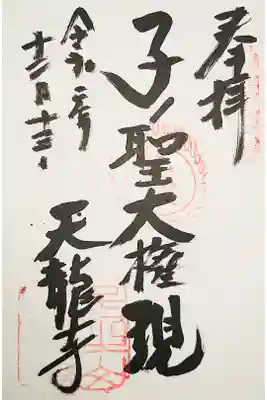 奉拝
子ノ聖大権現
天龍寺
令和二年
十二月十三日